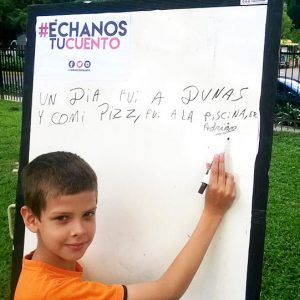 #ÉCHANOS
TUCUENTO
UN DIA FUI A DUNAS
Y COMI PIZZ, FUI A LA PISCINA,
Rodrigo